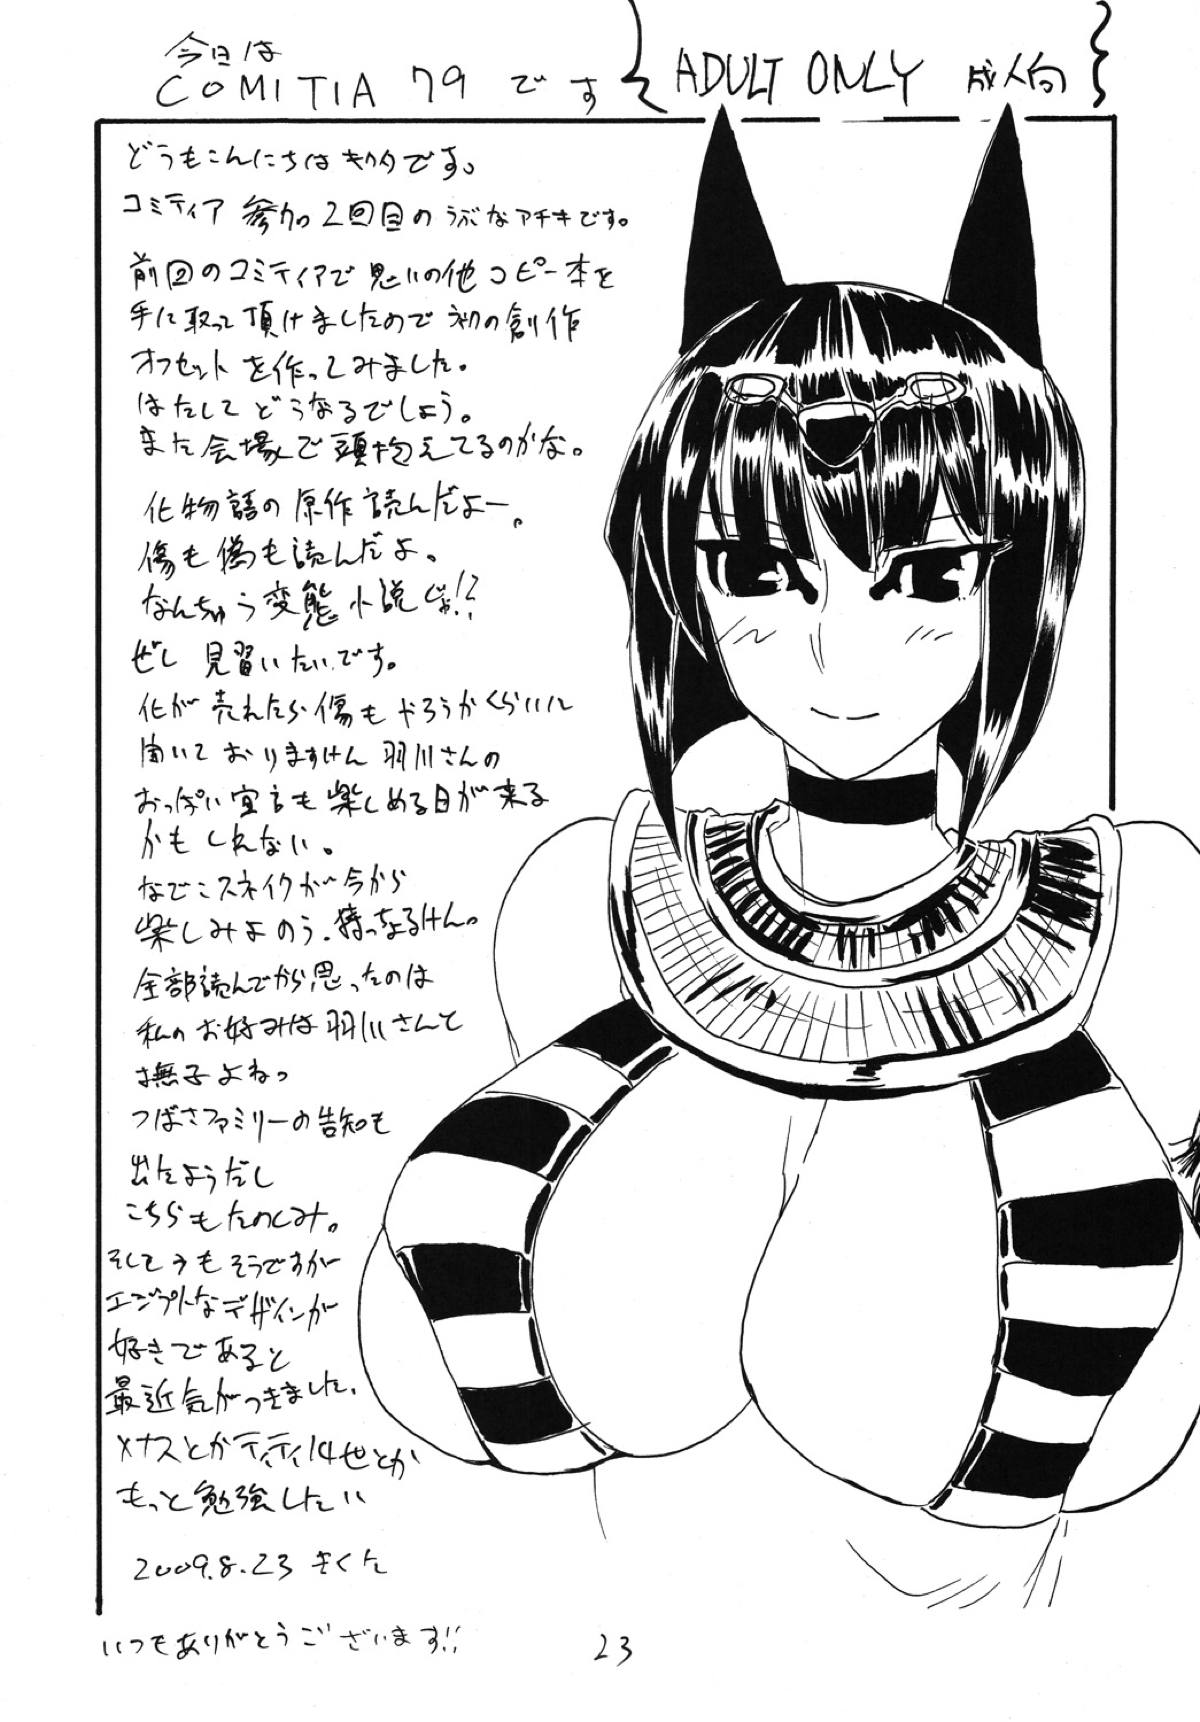 今日は
COMITIA 79 です
ADULT ONLY 成人向
どうもこんにちはキクタです。
コミティア 参加2回目のうぶなアチキです。
前回のコミティアで思いの他コピー本を
手に取って頂けましたので初の創作
オフセットを作ってみました。
はたしてどうなるでしょう。
また会場で頭抱えてるのかな。
化物語の原作読んだよー。
傷も偽も読んだよ。
なんちゅう変態小説じゃ!?
ぜし見習いたいです。
化が売れたら傷もやろうかくらいに
聞いておりますけん羽川さんの
おっぱい宣言も楽しめる日が来る
かもしれない。
なでこスネイクが今から
楽しみよのう、待っちょるけん。
全部読んでから思ったのは
私のお好みは羽川さんと
撫子よねっ
つばさファミリーの告知も
出たようだし
こちらもたのしみ。
そして今もそうですが
エジプトなデザインが
好きであると
最近気がつきました、
メナスとかティティ14世とか
もっと勉強したい
2009.8.23 きくた
いつもありがとうございます!!
23